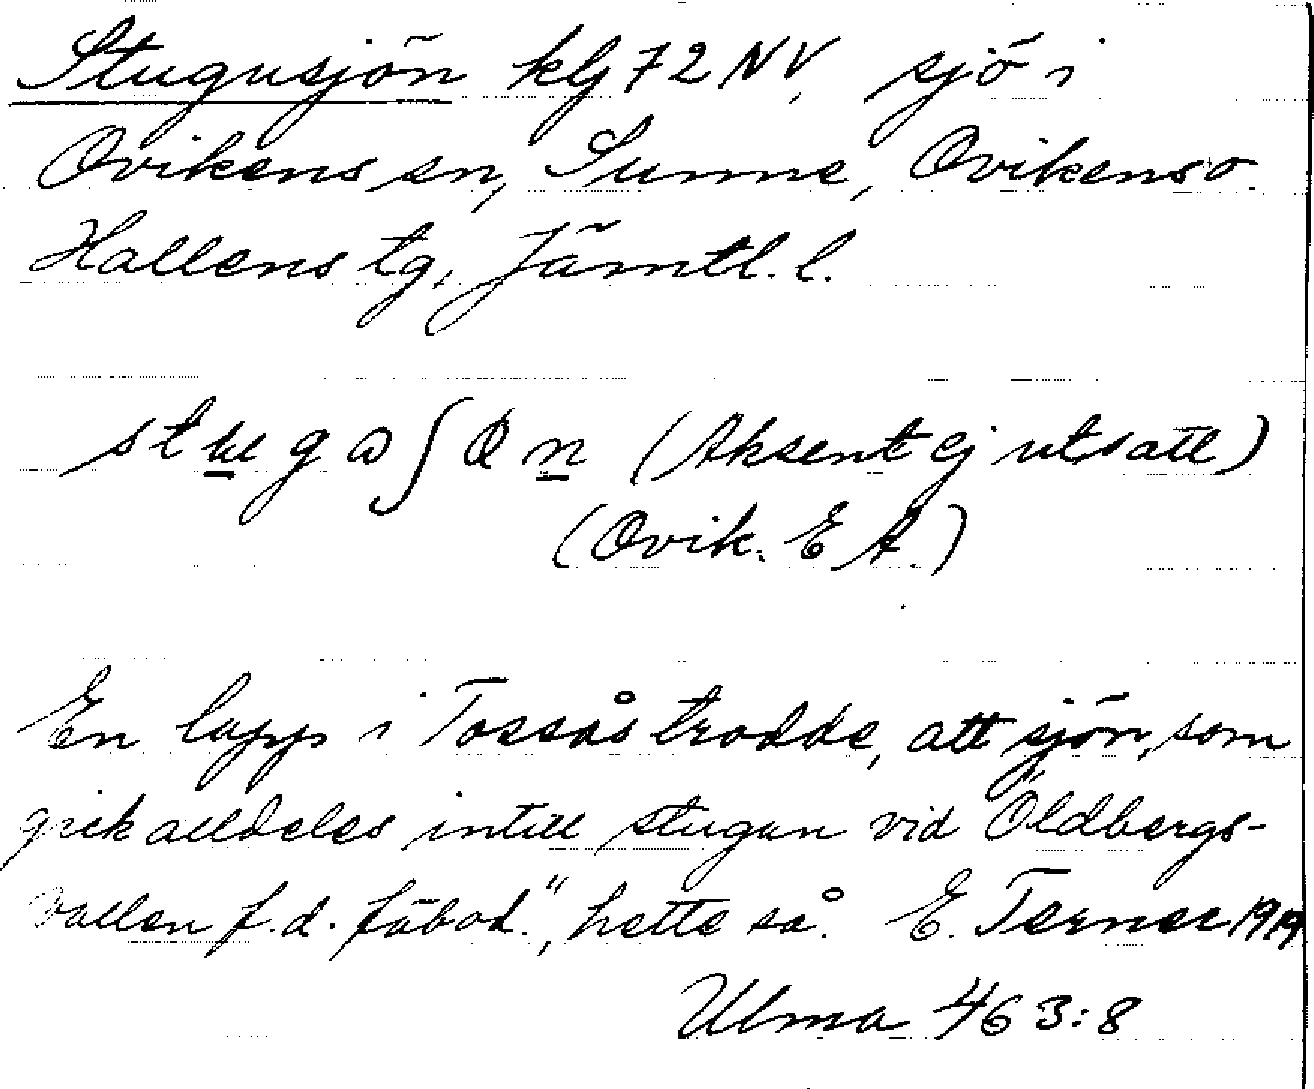 Stugusjön kbl 72 NV, sjö i
Ovikens sn, Sunne, Ovikens o.
Hallens tg, Jämtl. l.
stugaʃøn (Aksent ej utsatt)
(Ovik. E A.)
En lapp i Tossås trodde, att sjön, som
gick alldeles intill stugan vid Öldbergs-
vallen f.d. fäbod.", hette så. E. Terner 1919
Ulma 463:8